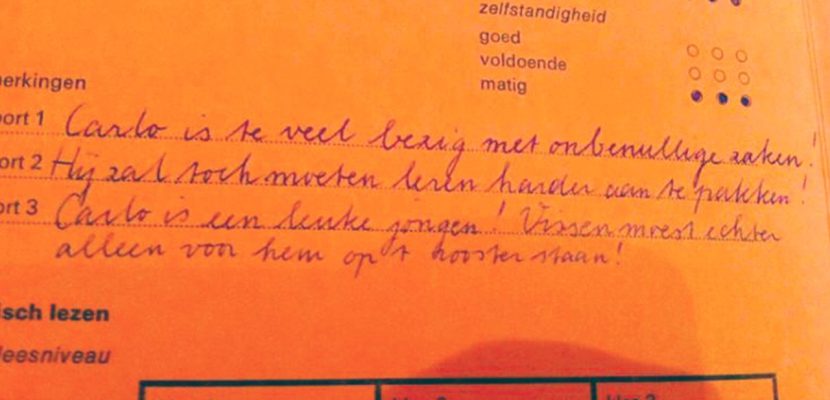 zelfstandigheid
goed
voldoende
matig
erkingen
ort 1 Carlo is te veel bezig met onbenullige zaken!
ort 2 Hij zal toch moeten leren harder aan te pakken!
ort 3 Carlo is een leuke jongen! Vissen moest echter
alleen voor hem op 't rooster staan!
isch lezen
leesniveau